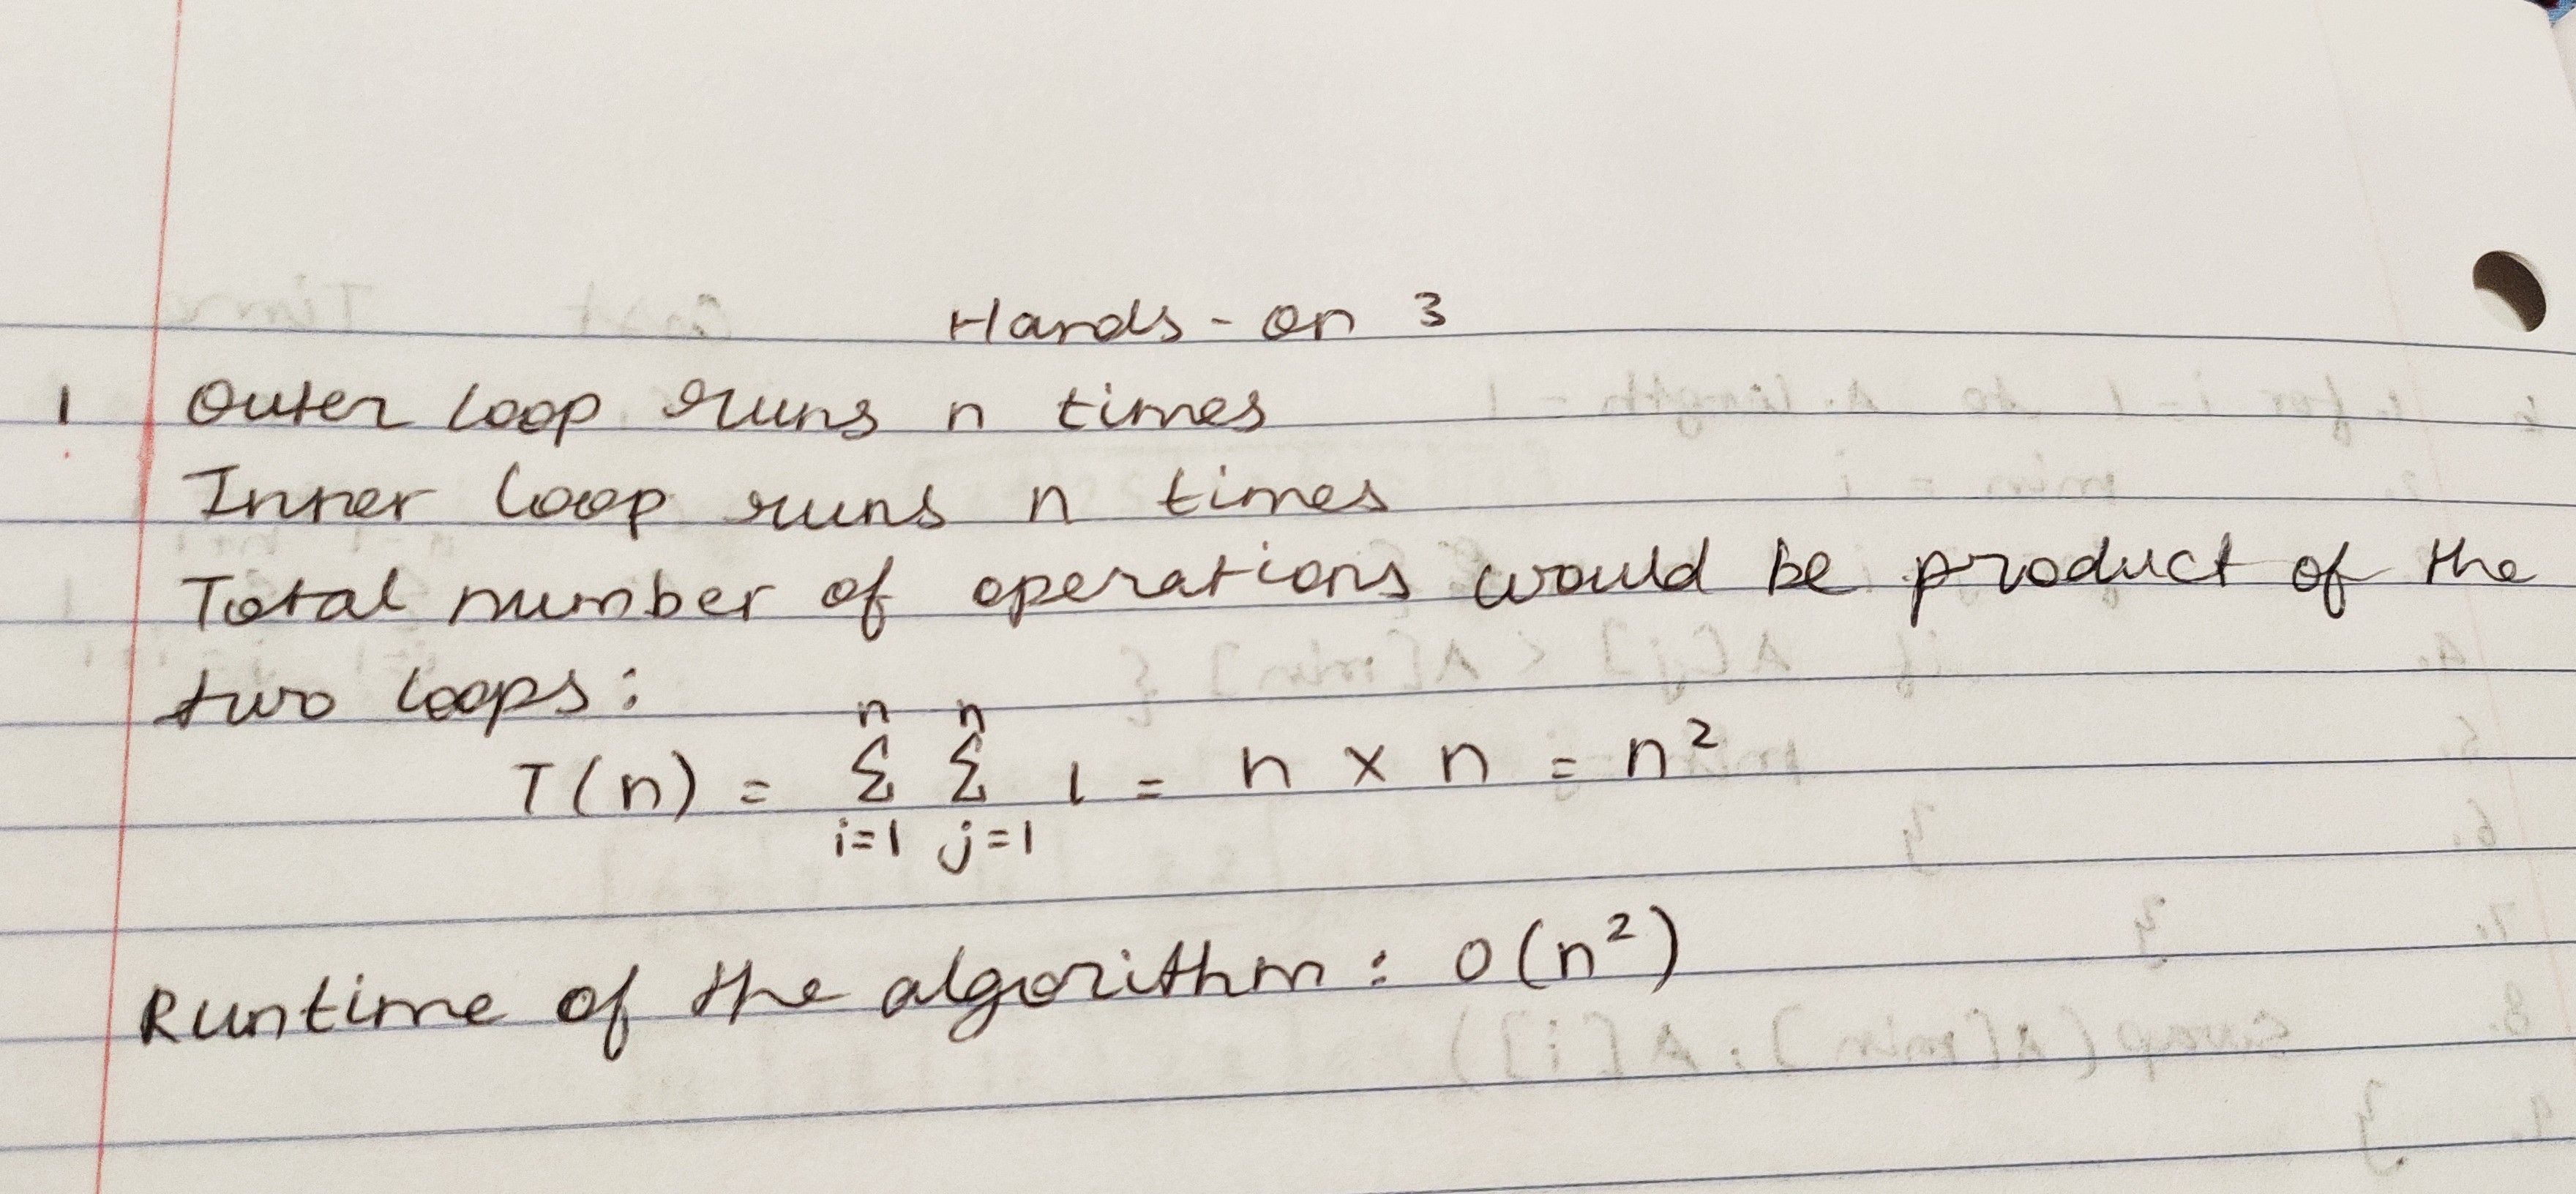 Hands-on 3
1 Outer loop runs n times
Inner loop runs n times
Total number of operations would be product of the
two loops:
T(n) = n∑i=1 n∑j=1 1 = n × n = n²
Runtime of the algorithm: O(n²)